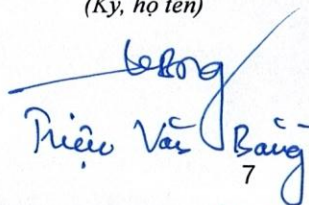 (Ký, họ tên)
Triệu Văn Bằng
7